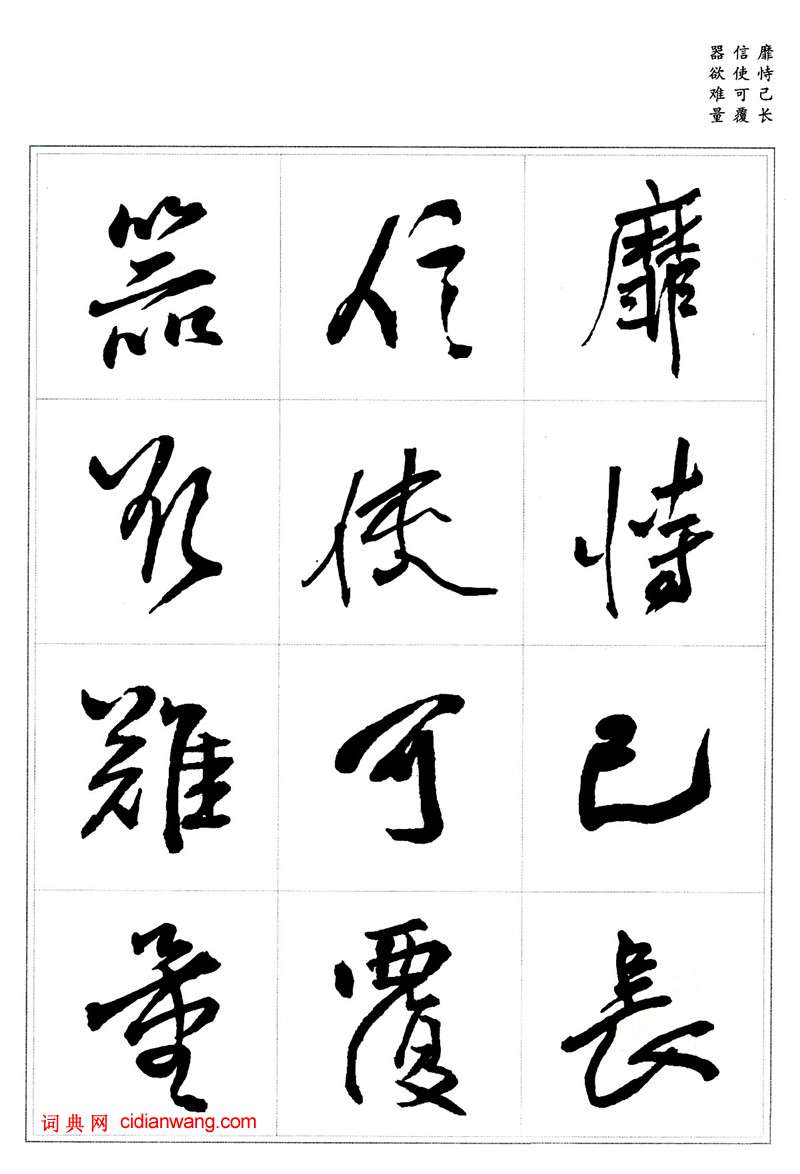 靡恃己长
信使可覆
器欲难量
靡恃己長
信使可覆
器欲難量
词典网 cidianwang.com